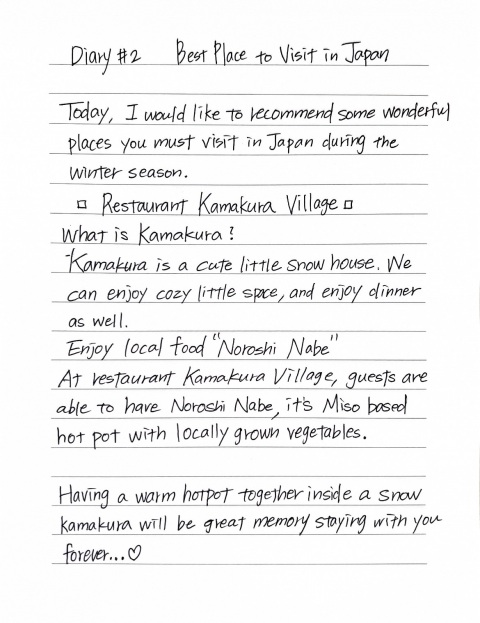 Diary #2 Best Place to Visit in Japan
Today, I would like to recommend some wonderful
places you must visit in Japan during the
winter season.
□ Restaurant Kamakura Village □
What is Kamakura?
Kamakura is a cute little snow house. We
can enjoy cozy little space, and enjoy dinner
as well.
Enjoy local food "Noroshi Nabe"
At restaurant Kamakura Village, guests are
able to have Noroshi Nabe, it's Miso based
hot pot with locally grown vegetables.
Having a warm hotpot together inside a snow
kamakura will be great memory staying with you
forever...♡